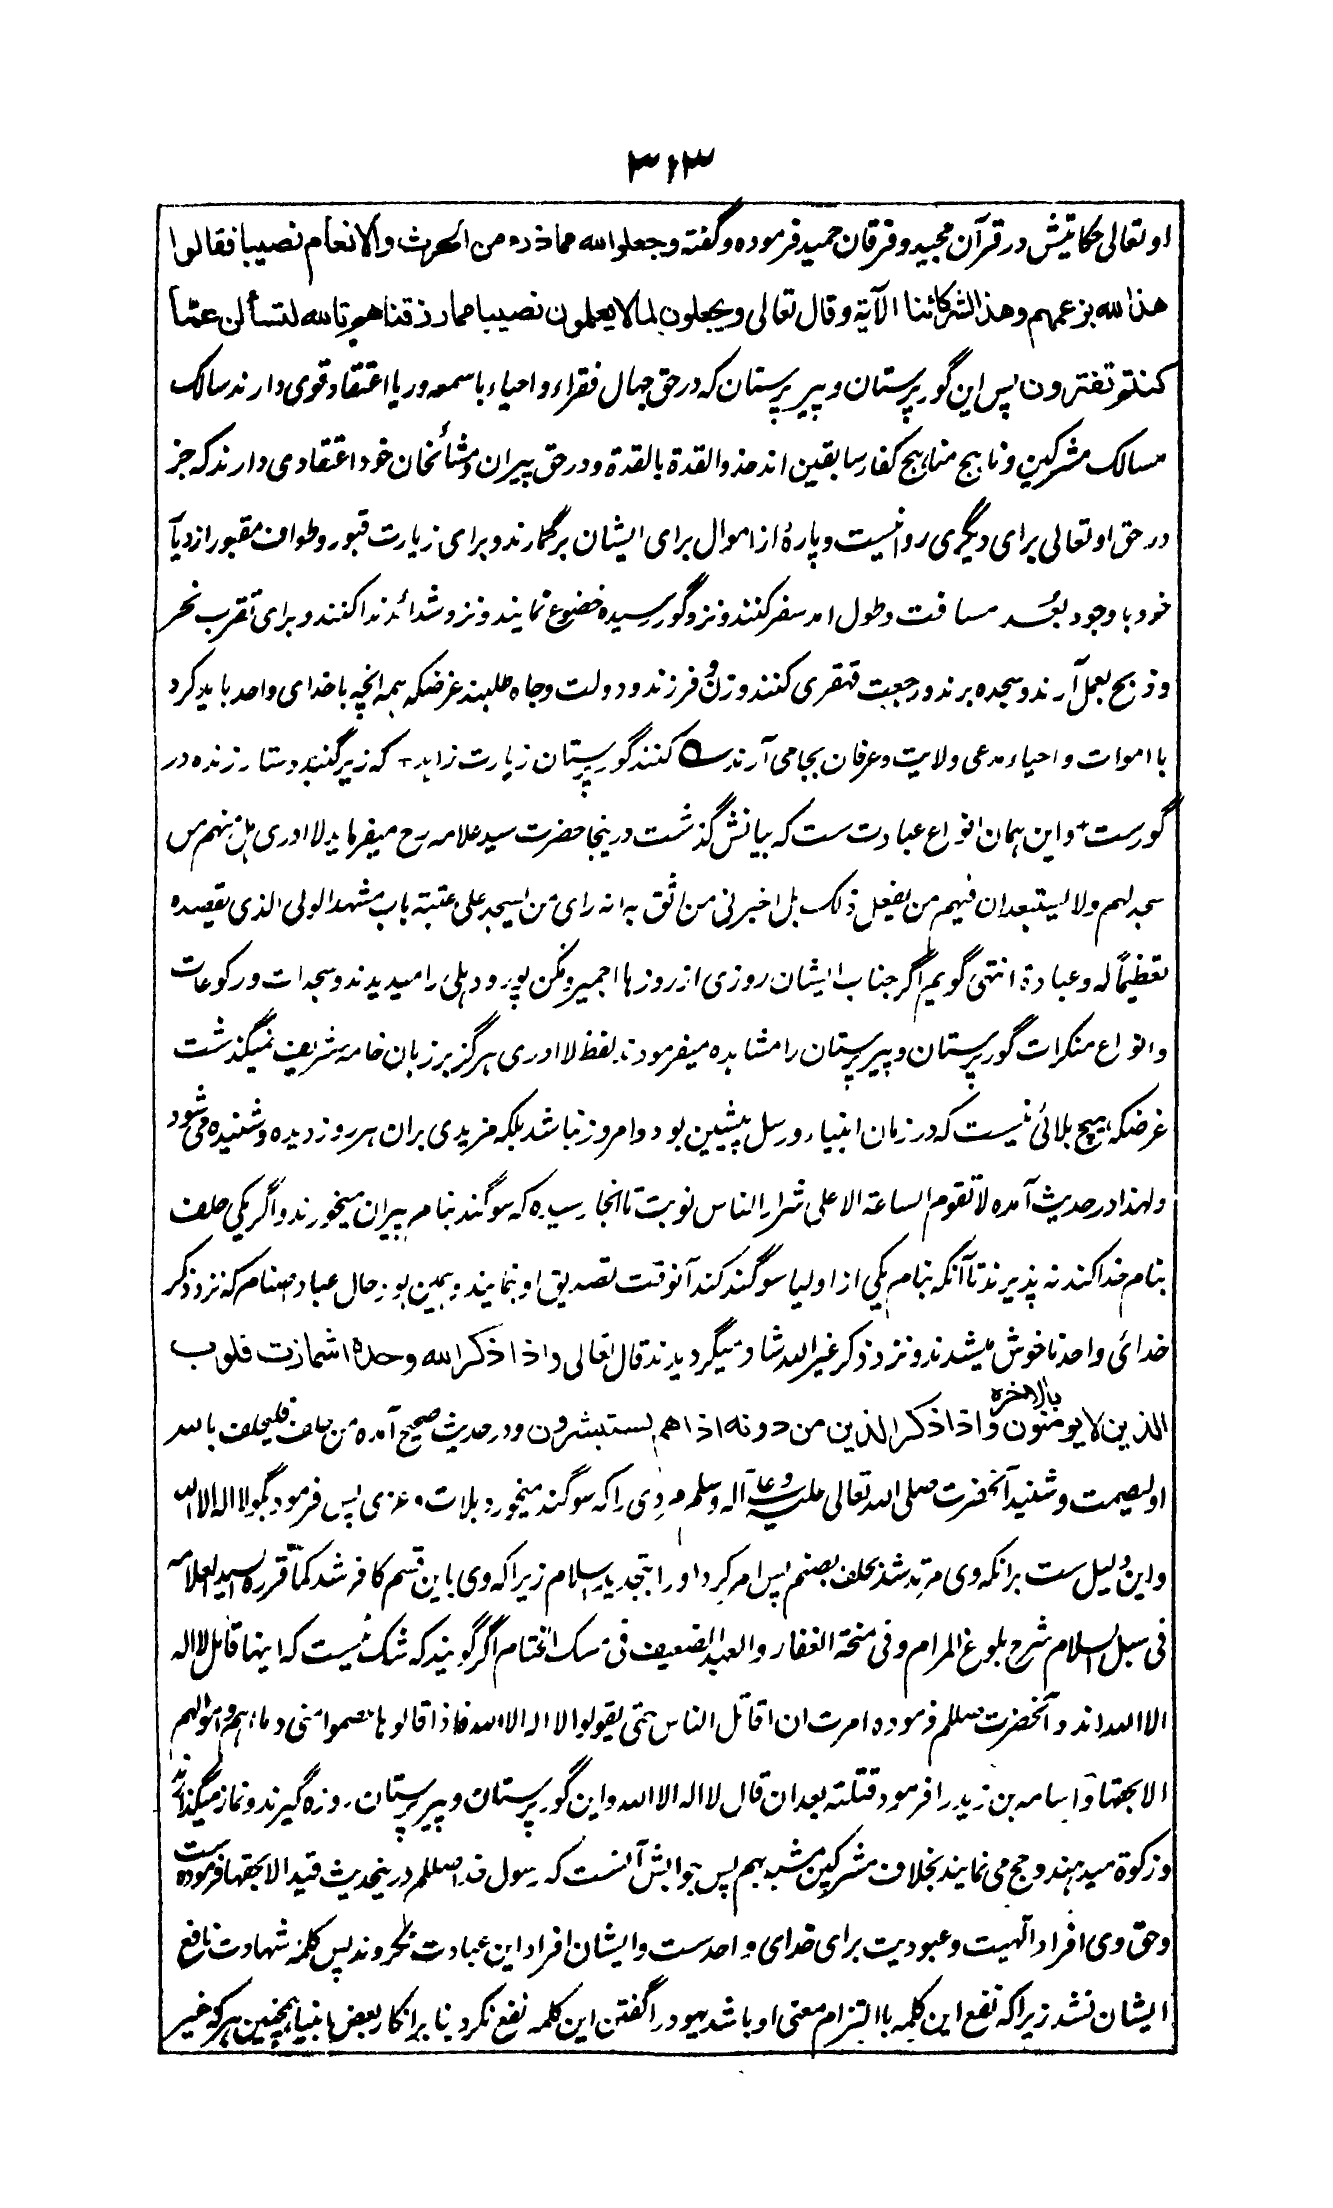 ۳۱۳
او تعالی حکایتش در قرآن مجید و فرقان حمید فرموده و گفته وجعلوا لله مما ذرء من الحرث والانعام نصیبا فقالوا
هذا لله بزعمهم وهذا لشرکائنا الآیة و قال تعالی ویجعلون لما لا یعلمون نصیبا مما رزقناهم تالله لتسألن عما
کنتم تفترون پس این گور پرستان و پیر پرستان که در حق جهال فقراء و احیاء با سمعه و ریا اعتقاد قوی دارند سالک
مسالک مشرکین و ناهج مناهیج کفار سابقین اند حذو القدة بالقدة و در حق پیران و مشائخان خود اعتقادی دارند که جز
در حق او تعالی برای دیگری روا نیست و پارهٔ از اموال برای ایشان بر گمارند و برای زیارت قبور و طواف مقبور از دیار
خود با وجود بعد مسافت و طول امد سفر کنند و نزد گور رسیده خضوع نمایند و نزد شدائد ندا کنند و برای تقرب نحر
و ذبح بعمل آرند و سجده برند و رجعت قهقری کنند و زن و فرزند و دولت و جاه طلبند غرضکه همه آنچه با خدای واحد باید کرد
با اموات و احیاء مدعی ولایت و عرفان بجا می آرند ؎ کنند گور پرستان زیارت زاهد + که زیر گنبد دستار زنده در
گورست + و این همان انواع عبادت ست که بیانش گذشت درینجا حضرت سید علامه رح میفرماید لا ادری هل منهم من
سجد لهم ولا یستبعد ان فیهم من یفعل ذلک بل اخبرنی من اثق به انه رای من یسجد علی عتبة باب مشهد الولی الذی یقصده
تعظیماً له و عبادة انتهی گویم اگر جناب ایشان روزی از روزها اجمیر و مکن پور و دهلی را میدیدند و سجدات و رکوعات
و انواع منکرات گور پرستان و پیر پرستان را مشاهده میفرمودند لفظ لا ادری هرگز بر زبان خامهٔ شریف نمیگذشت
غرضکه هیچ بلائی نیست که در زمان انبیاء و رسل پیشین بود و امروز نباشد بلکه مزیدی بران هر روز دیده و شنیده می شود
و لهذا در حدیث آمده لا تقوم الساعة الا علی شرار الناس نوبت تا انجا رسیده که سوگند بنام پیران میخورند و اگر یکی حلف
بنام خدا کند نه پذیرند تا آنکه بنام یکی از اولیا سوگند کند آنوقت تصدیق او نمایند و همین بود حال عباد اصنام که نزد ذکر
خدای واحد ناخوش میشدند و نزد ذکر غیر الله شاد میگردیدند قال تعالی واذا ذکر الله وحده اشمازت قلوب
الذین لا یومنون بالاخرة واذا ذکر الذین من دونه اذا هم یستبشرون و در حدیث صحیح آمده من حلف فلیحلف بالله
او لیصمت و شنید آنحضرت صلی الله تعالی علیه و علی آله وسلم مردی را که سوگند میخورد بلات و عزی پس فرمود بگو لا اله الا الله
و این دلیل ست برانکه وی مرتد شد بحلف بصنم پس امر کرد او را بتجدید اسلام زیرا که وی باین قسم کافر شد کما قرره السید العلامه
فی سبل السلام شرح بلوغ المرام و فی منحة الغفار والعبد الضعیف فی مسک الختام اگر گویند که شک نیست که اینها قائل لا اله
الا الله اند و آنحضرت صللم فرموده امرت ان اقاتل الناس حتی یقولوا لا اله الا الله فاذا قالوها عصموا منی دماءهم و اموالهم
الا بحقها و اسامه بن زید را فرمود قتلته بعد ان قال لا اله الا الله و این گور پرستان و پیر پرستان روزه گیرند و نماز میگذارند
و زکوة میدهند و حج می نمایند بخلاف مشرکین مشبه بهم پس جوابش آنست که رسول خدا صللم درینحدیث قید الا بحقها فرموده ست
و حق وی افراد الهیت و عبودیت برای خدای واحدست و ایشان افراد این عبادت نکردند پس کلمهٔ شهادت نافع
ایشان نشد زیرا که نفع این کلمه با التزام معنی او باشد یهود را گفتن این کلمه نفع نکرد بنا بر انکار بعض انبیا همچنین هر که غیر